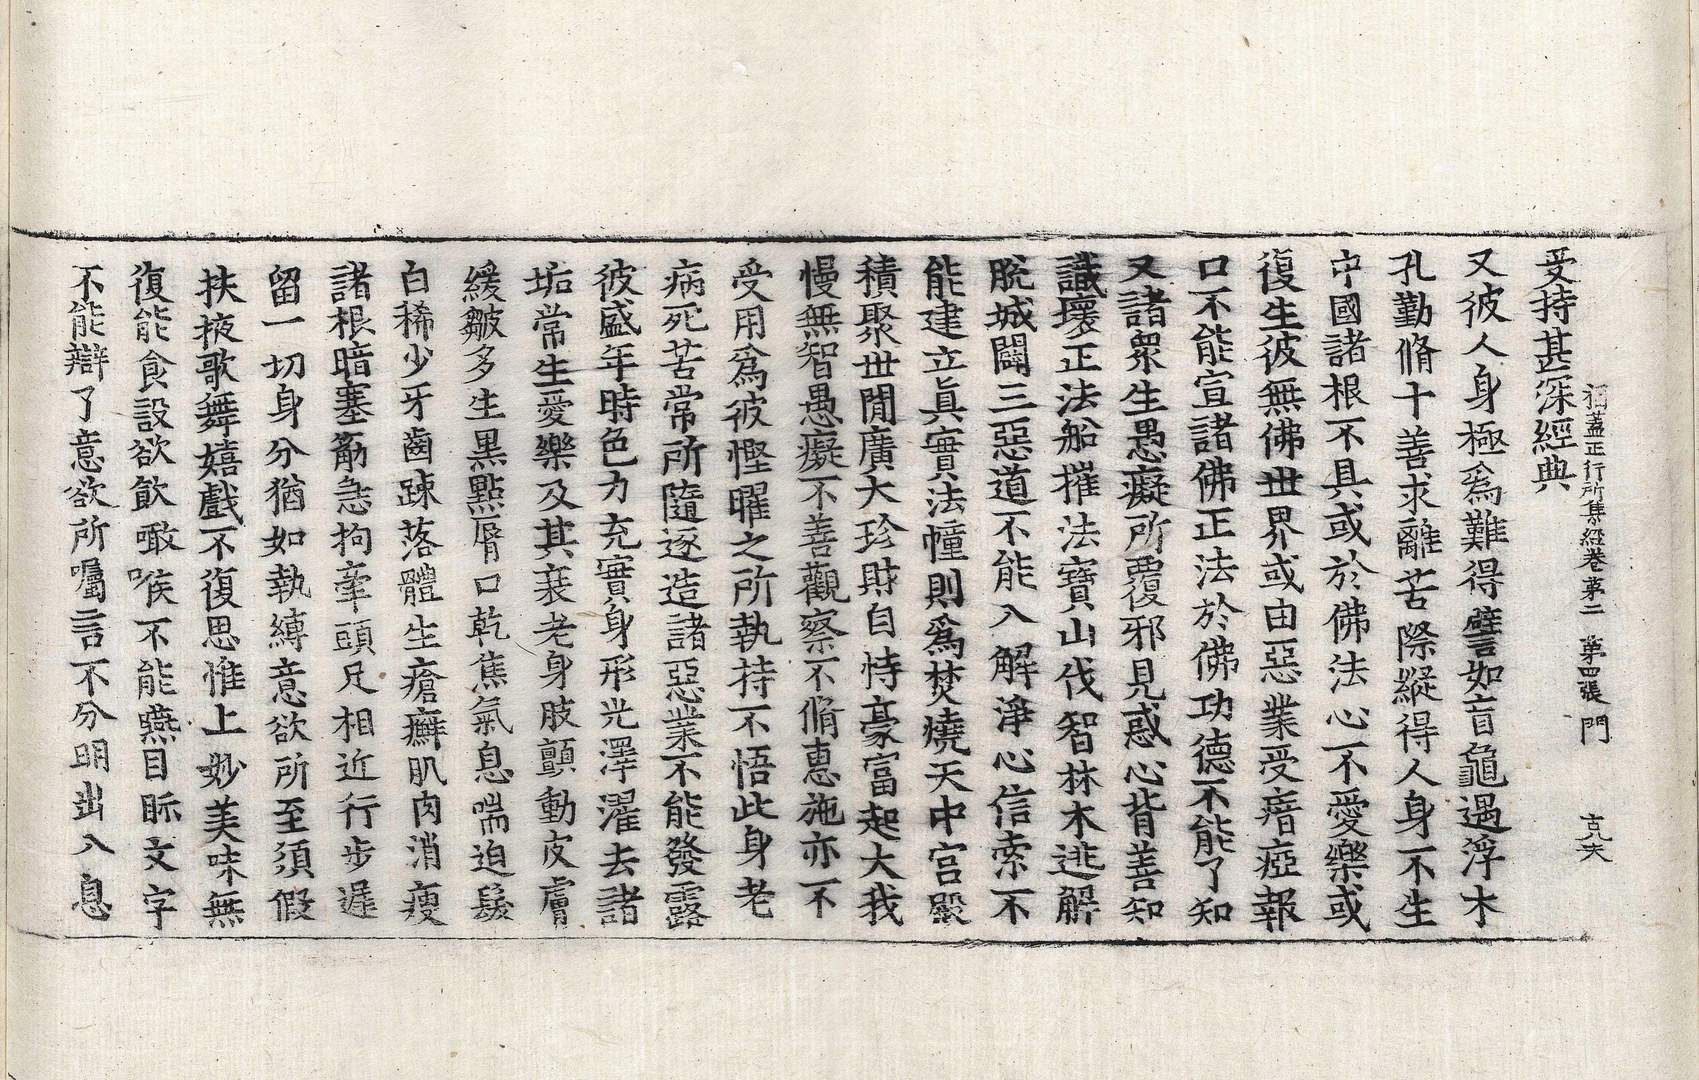 福蓋正行所集經卷第二 第四張 門
受持甚深經典
又彼人身極爲難得譬如盲龜遇浮木
孔勤脩十善求離苦際縱得人身不生
中國諸根不具或於佛法心不愛樂或
復生彼無佛世界或由惡業受瘖瘂報
口不能宣諸佛正法於佛功德不能了知
又諸衆生愚癡所覆邪見惑心背善知
識壞正法船摧法寶山伐智林木逃解
脫城闢三惡道不能入解淨心信索不
能建立眞實法幢則爲焚燒天中宮殿
積聚世閒廣大珍財自恃豪富起大我
慢無智愚癡不善觀察不脩惠施亦不
受用爲彼慳曜之所執持不悟此身老
病死苦常所隨逐造諸惡業不能發露
彼盛年時色力充實身形光澤濯去諸
垢常生愛樂及其衰老身肢顫動皮膚
緩皺多生黑點脣口乾焦氣息喘迫鬚
白稀少牙齒踈落體生瘡癬肌肉消瘦
諸根暗塞筋急拘牽頭尺相近行步遲
留一切身分猶如執縛意欲所至須假
扶掖歌舞嬉戲不復思惟上妙美味無
復能食設欲飮噉喉不能嚥目眎文字
不能辯了意欲所囑言不分明出入息